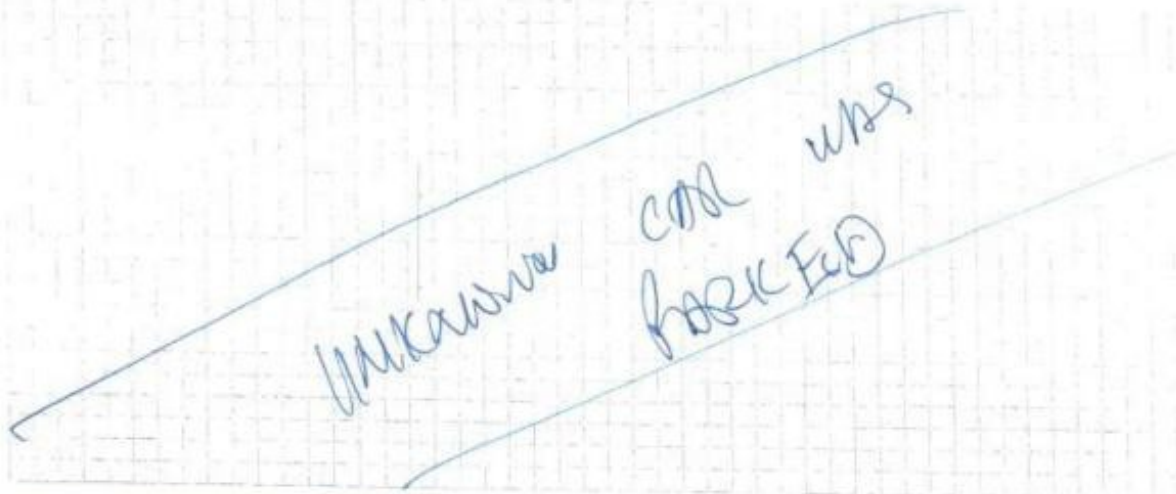 UNKNOWN CAR WAS
PARKED